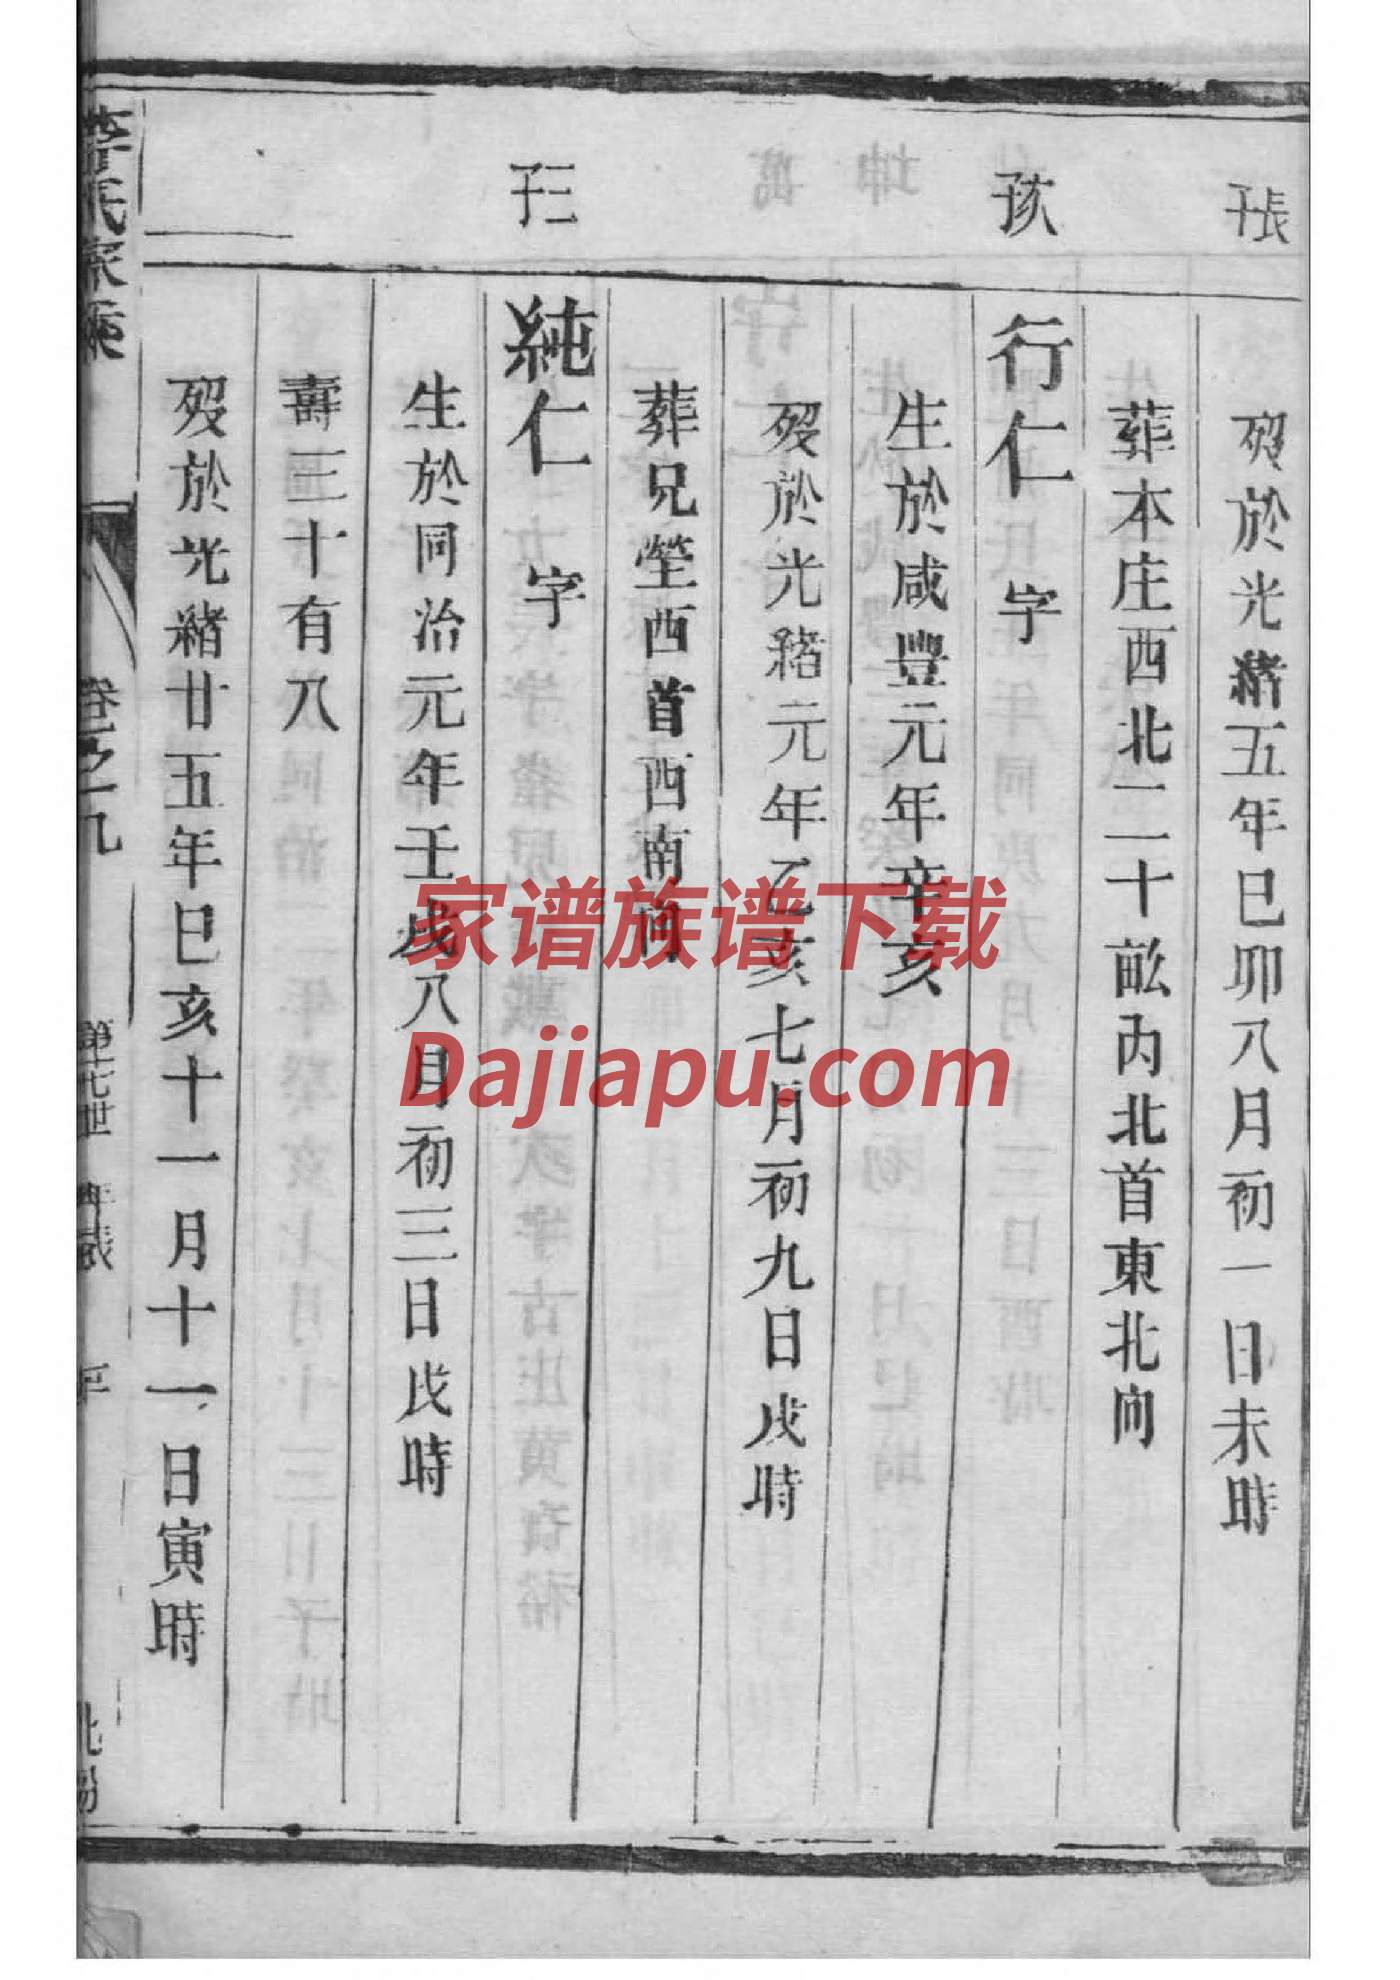 長子
歿於光緒五年巳卯八月初一日未時
葬本庄西北二十畝內北首東北向
次子
行仁 字
生於咸豐元年辛亥
歿於光緒元年乙亥七月初九日戌時
葬兄塋西首西南向
三子
純仁 字
生於同治元年壬戌八月初三日戌時
壽三十有八
歿於光緒廿五年巳亥十一月十一日寅時
李氏家乘
卷之九
第十七世 年表
北份
家谱族谱下载
Dajiapu.com